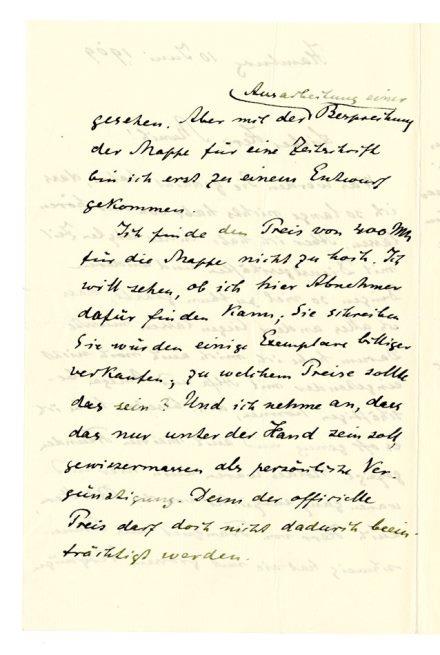 Ausarbeitung einer
gesehen. Aber mit der Besprechung
der Mappe für eine Zeitschrift
bin ich erst zu einem Entwurf
gekommen.
Ich finde den Preis von 400 Mk
für die Mappe nicht zu hoch. Ich
will sehen, ob ich hier Abnehmer
dafür finden kann; Sie schreiben
Sie würden einige Exemplare billiger
verkaufen, zu welchem Preise sollte
das sein? Und ich nehme an, dass
das nur unter der Hand sein soll,
gewissermassen als persönliche Ver-
günstigung. Denn der officielle
Preis darf doch nicht dadurch beein-
trächtigt werden.